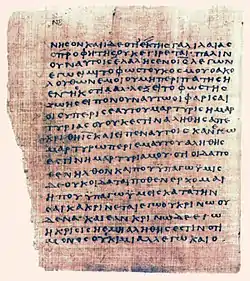 ΝΒ
ΝΗϹΟΝ ΚΑΙ ΙΔΕ ΟΤΙ ΕΚ ΤΗϹ ΓΑΛΙΛΑΙΑϹ
Ο ΠΡΟΦΗΤΗϹ ΟΥΚ ΕΓΕΙΡΕΤΑΙ· ΠΑΛΙΝ
ΟΥΝ ΑΥΤΟΙϹ ΕΛΑΛΗϹΕΝ Ο ΙϹ ΛΕΓΩΝ
ΕΓΩ ΕΙΜΙ ΤΟ ΦΩϹ ΤΟΥ ΚΟϹΜΟΥ· Ο ΑΚΟ
ΛΟΥΘΩΝ ΕΜΟΙ ΟΥ ΜΗ ΠΕΡΙΠΑΤΗϹΗ
ΕΝ ΤΗ ϹΚΟΤΙΑ ΑΛΛ ΕΞΕΙ ΤΟ ΦΩϹ ΤΗϹ
ΖΩΗϹ· ΕΙΠΟΝ ΟΥΝ ΑΥΤΩ ΟΙ ΦΑΡΙϹΑΙ
ΟΙ ϹΥ ΠΕΡΙ ϹΕΑΥΤΟΥ ΜΑΡΤΥΡΙϹ Η ΜΑΡ
ΤΥΡΙΑ ϹΟΥ ΟΥΚ ΕϹΤΙΝ ΑΛΗΘΗϹ ΑΠΕ
ΚΡΙΘΗ ΙϹ ΚΑΙ ΕΙΠΕΝ ΑΥΤΟΙϹ ΚΑΝ ΕΓΩ
ΜΑΡΤΥΡΩ ΠΕΡΙ ΕΜΑΥΤΟΥ ΑΛΗΘΗϹ
ΕϹΤΙΝ Η ΜΑΡΤΥΡΙΑ ΜΟΥ ΟΤΙ ΟΙΔΑ ΠΟ
ΘΕΝ ΗΛΘΟΝ ΚΑΙ ΠΟΥ ΥΠΑΓΩ ΥΜΙϹ
ΔΕ ΟΥΚ ΟΙΔΑΤΕ ΠΟΘΕΝ ΕΡΧΟΜΑΙ
Η ΠΟΥ ΥΠΑΓΩ ΥΜΕΙϹ ΚΑΤΑ ΤΗΝ
ϹΑΡΚΑ ΚΡΙΝΕΤΑΙ ΕΓΩ ΟΥ ΚΡΙΝΩ ΟΥ
ΔΕΝΑ· ΚΑΙ ΕΑΝ ΚΡΙΝΩ ΔΕ ΕΓΩ
Η ΚΡΙϹΙϹ Η ΕΜΗ ΑΛΗΘΗϹ ΕϹΤΙΝ ΟΤΙ
ΜΟΝΟϹ ΟΥΚ ΕΙΜΙ ΑΛΛ ΕΓΩ ΚΑΙ Ο